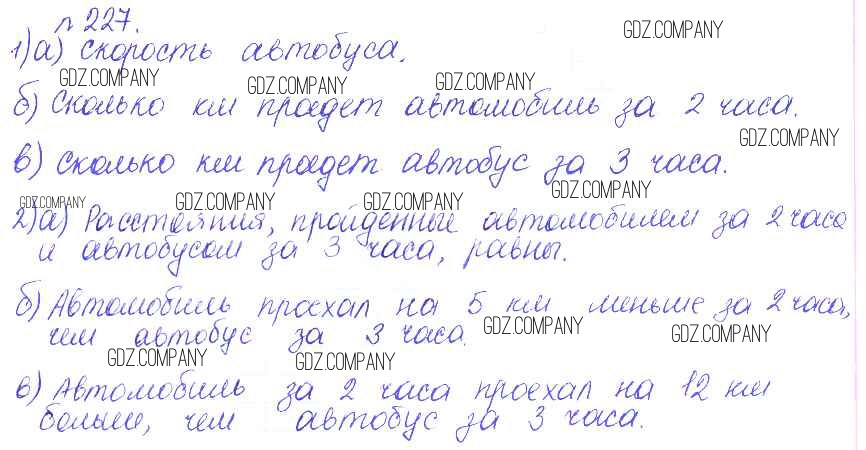 № 227.
GDZ.COMPANY
1) а) Скорость автобуса.
GDZ.COMPANY GDZ.COMPANY GDZ.COMPANY
б) Сколько км пройдет автомобиль за 2 часа.
GDZ.COMPANY
в) Сколько км пройдет автобус за 3 часа.
GDZ.COMPANY GDZ.COMPANY GDZ.COMPANY GDZ.COMPANY
2) а) Расстояния, пройденные автомобилем за 2 часа
и автобусом за 3 часа, равны.
б) Автомобиль проехал на 5 км меньше за 2 часа,
чем автобус за 3 часа.
GDZ.COMPANY GDZ.COMPANY
GDZ.COMPANY GDZ.COMPANY
в) Автомобиль за 2 часа проехал на 12 км
больше, чем автобус за 3 часа.